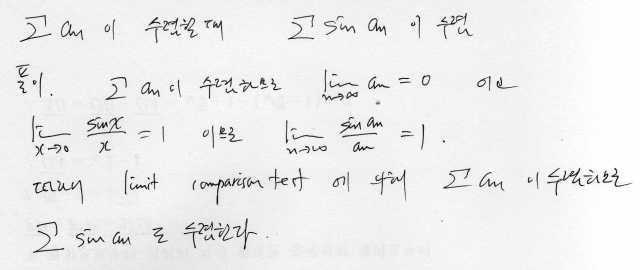 ∑ an 이 수렴할 때 ∑ sin an 이 수렴
풀이. ∑ an 이 수렴하므로 lim n→∞ an = 0 이고
lim x→0 sinx/x = 1 이므로 lim n→∞ sin an/an = 1.
따라서 limit comparison test 에 의해 ∑ an 이 수렴하므로
∑ sin an 도 수렴한다.